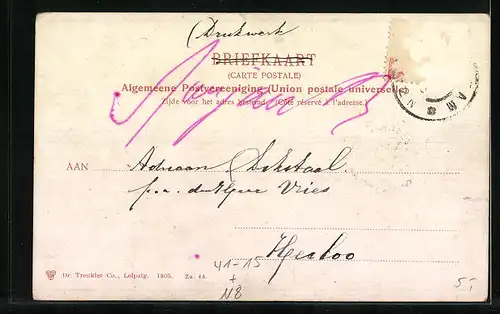 Drukwerk
BRIEFKAART
(CARTE POSTALE)
Algemeene Postvereeniging (Union postale universelle)
Zijde voor het adres bestemd. (Côté réservé à l'adresse.)
AAN Adriaan
p.a. de Heer Vries
Heiloo
41-15
+
N8
5,-
Dr. Trenkler Co., Leipzig. 1905. Za. 44.